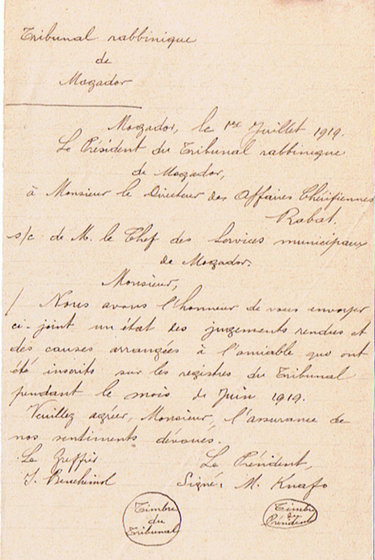 Tribunal rabbinique
de
Mogador
Mogador, le 1er Juillet 1919.
Le Président du Tribunal rabbinique
de Mogador,
à Monsieur le Directeur des Affaires Chérifiennes
Rabat.
s/c de M. le Chef des Services municipaux
de Mogador.
Monsieur,
Nous avons l'honneur de vous envoyer
ci-joint un état des jugements rendus et
des causes arrangées à l'amiable qui ont
été inscrits sur les registres du Tribunal
pendant le mois de Juin 1919.
Veuillez agréer, Monsieur, l'assurance de
nos sentiments dévoués.
Le Greffier Le Président,
Signé: M. Knafo
Timbre
du
Tribunal
Timbre
du
Président